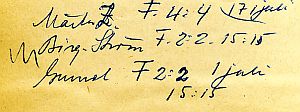 Märta Z. F. 4:4 17 juli
Birg. Ström F 2:2. 15:15
Gunnel F 2:2 1 juli
15:15